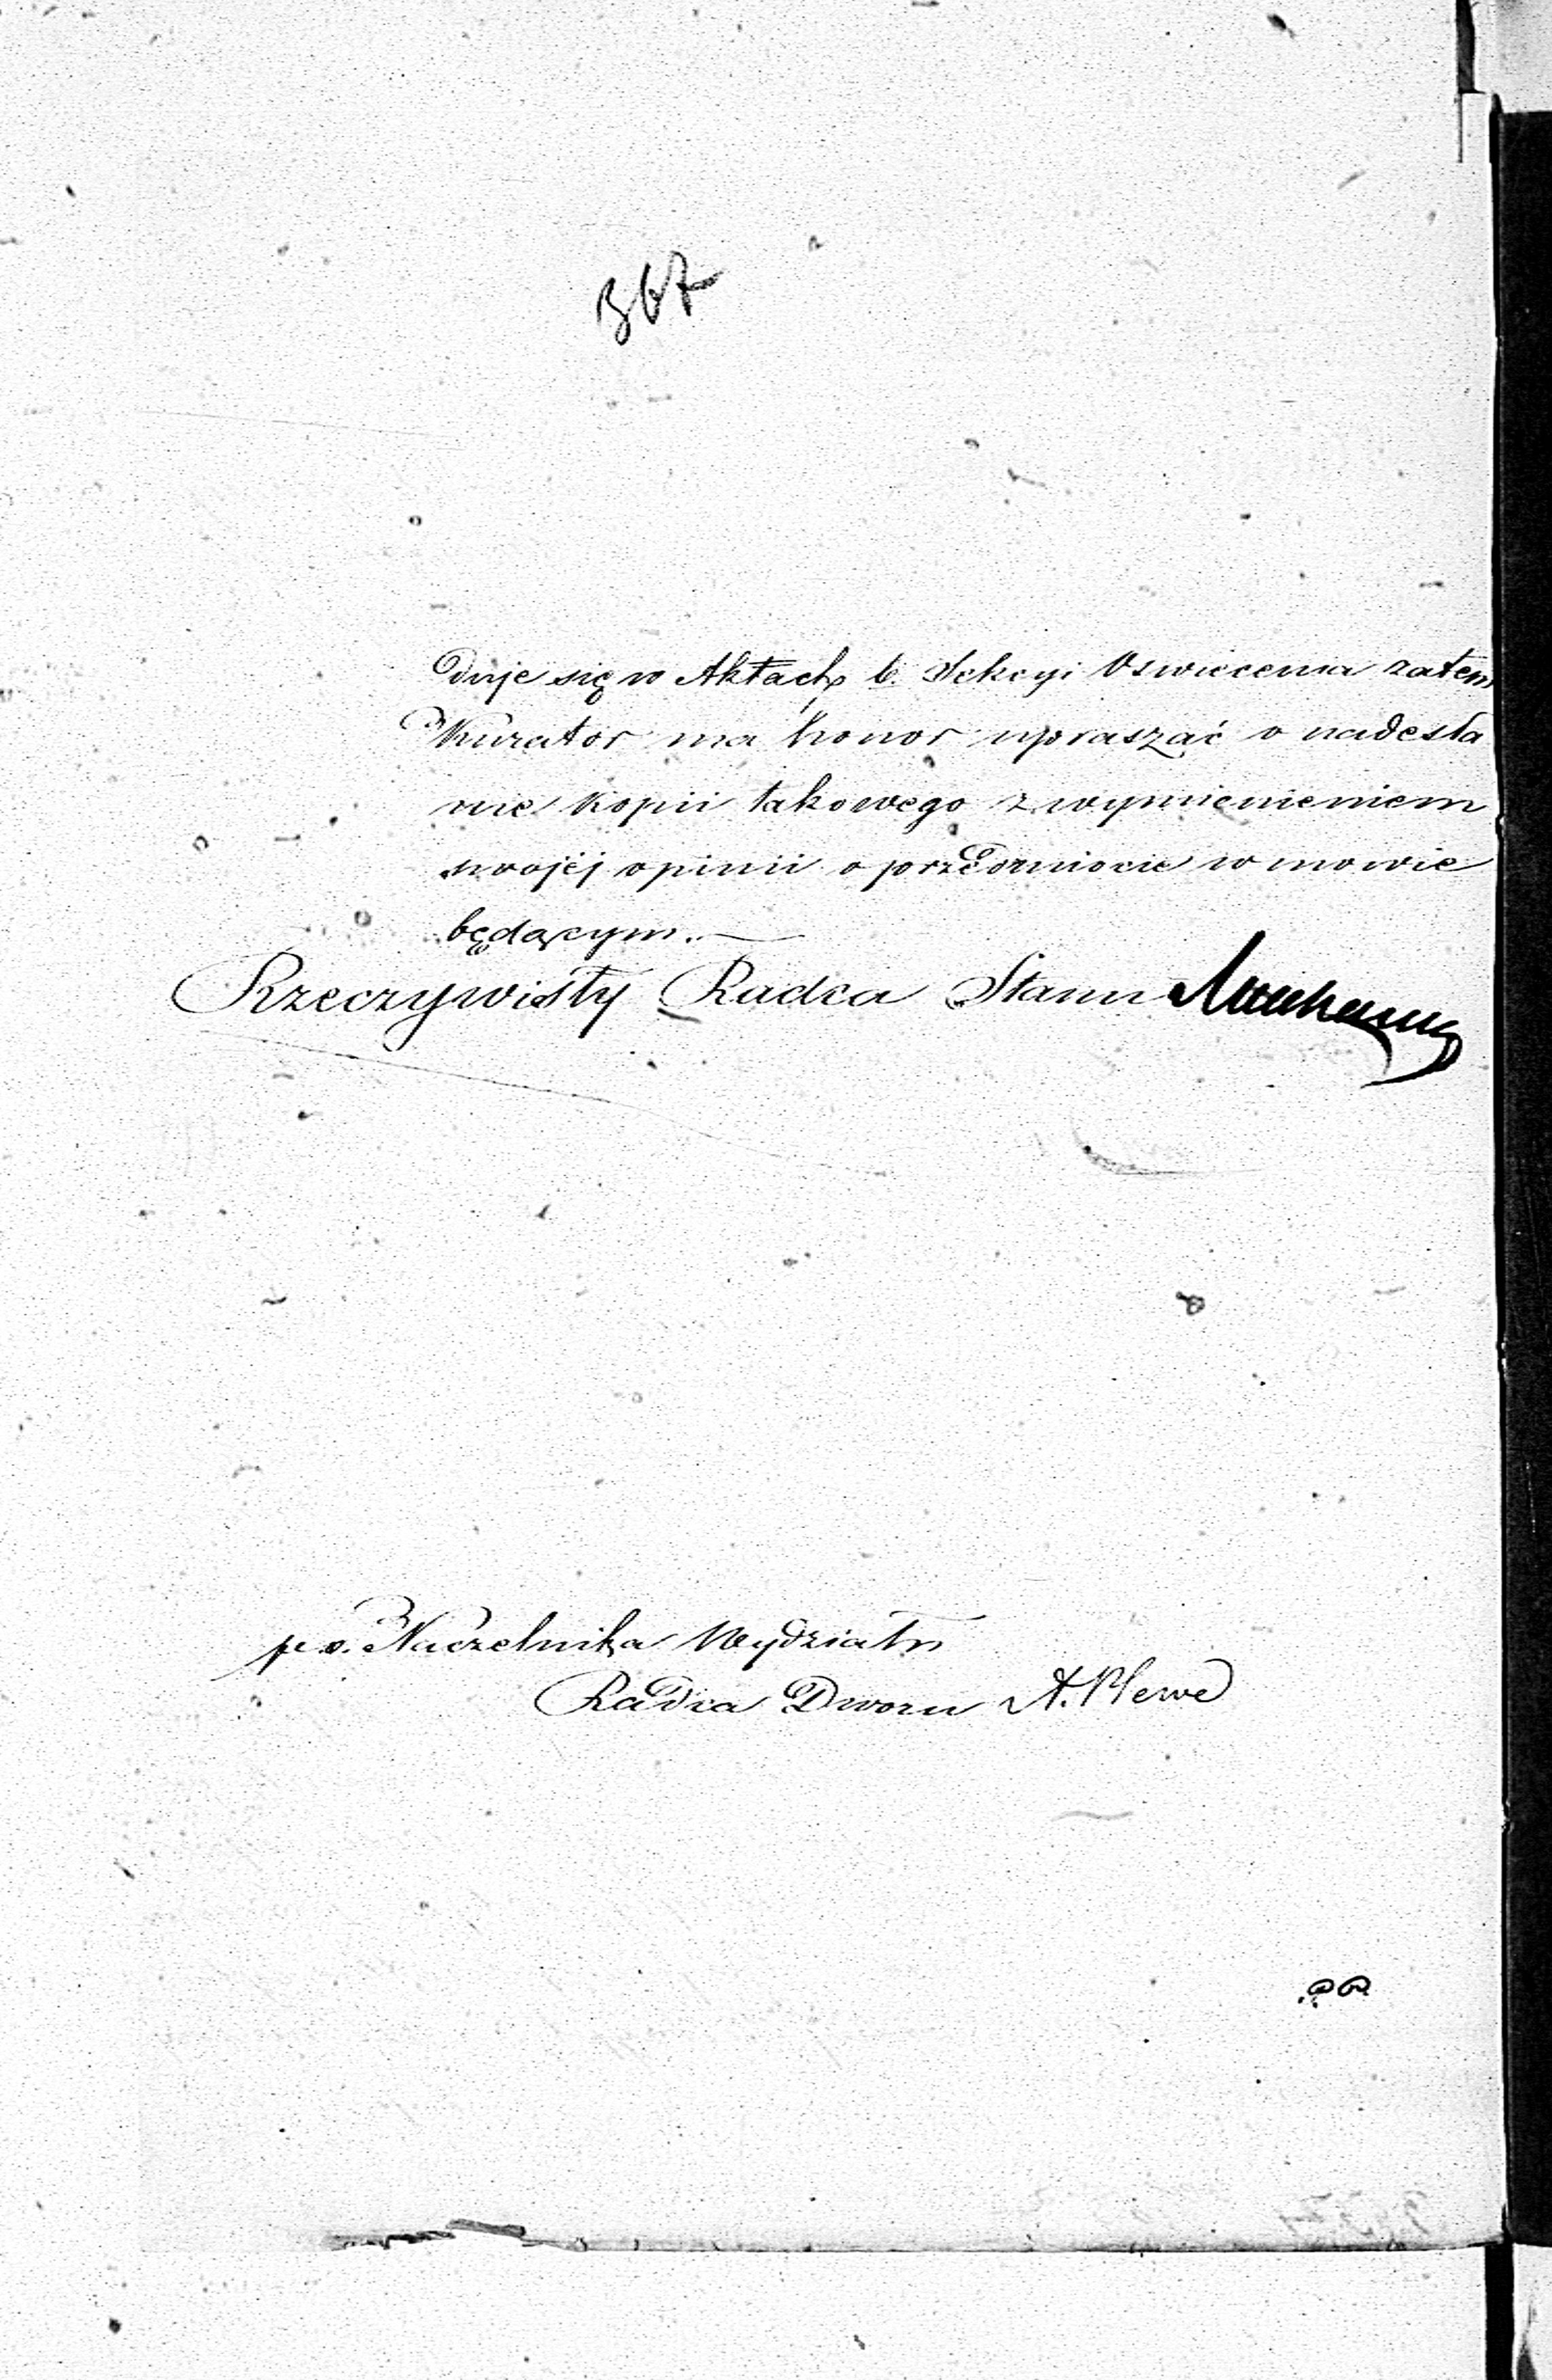 367
duje się w Aktach b. Sekcyi Oswiecenia zatem
Kurator ma honor upraszać o nadesła
nie kopii takowego z wymienieniem
swojéj opinii o przedmiocie w mowie
będącym. —
Rzeczywisty Radca Stanu
p. o. Naczelnika Wydziału
Radca Dworu A. Plewe